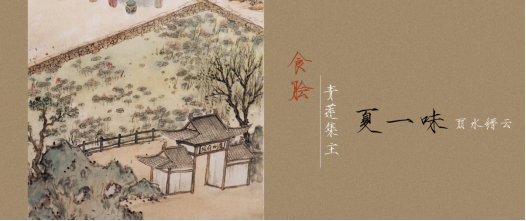 食脍
青莲集主
夏一味
夏水缙云